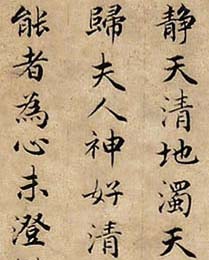 静天清地濁天
歸夫人神好清
能者為心未澄